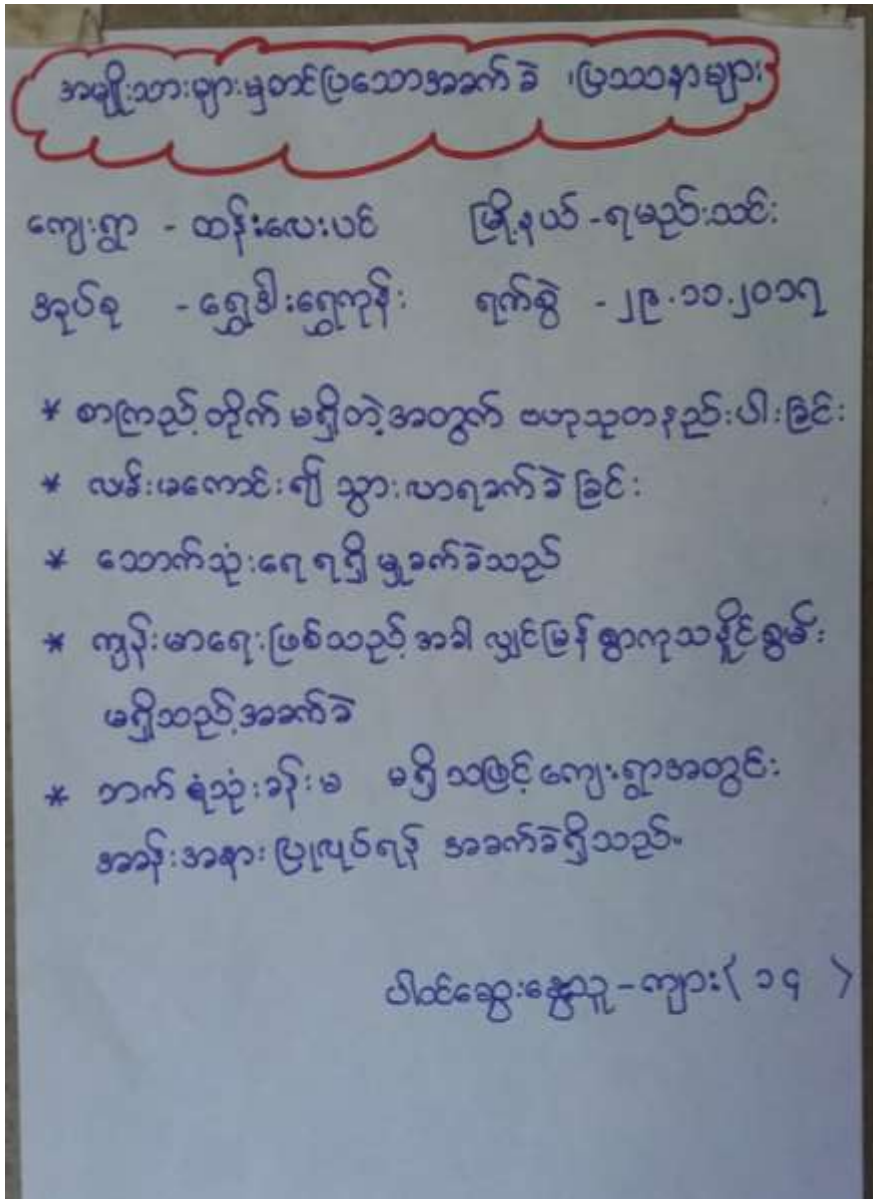 အမျိုးသားများမှတင်ပြသောအခက်ခဲ ၊ပြဿနာများ
ကျေးရွာ - ထန်းလေးပင် မြို့နယ် - ရမည်းသင်း
အုပ်စု - ရွှေဒါးရွှေကုန်း ရက်စွဲ - ၂၉.၁၁.၂၀၁၇
* စာကြည့်တိုက် မရှိတဲ့အတွက် ဗဟုသုတနည်းပါးခြင်း
* လမ်းမကောင်း၍ သွားလာရခက်ခဲခြင်း
* သောက်သုံးရေ ရရှိမှုခက်ခဲသည်
* ကျန်းမာရေးဖြစ်သည့်အခါ လျှင်မြန်စွာကုသနိုင်စွမ်း
မရှိသည့်အခက်ခဲ
* ဘက်စုံသုံးခန်းမ မရှိသဖြင့် ကျေးရွာအတွင်း
အခန်းအနားပြုလုပ်ရန် အခက်ခဲရှိသည်။
ပါဝင်ဆွေးနွေးသူ - ကျား ( ၁၄ )